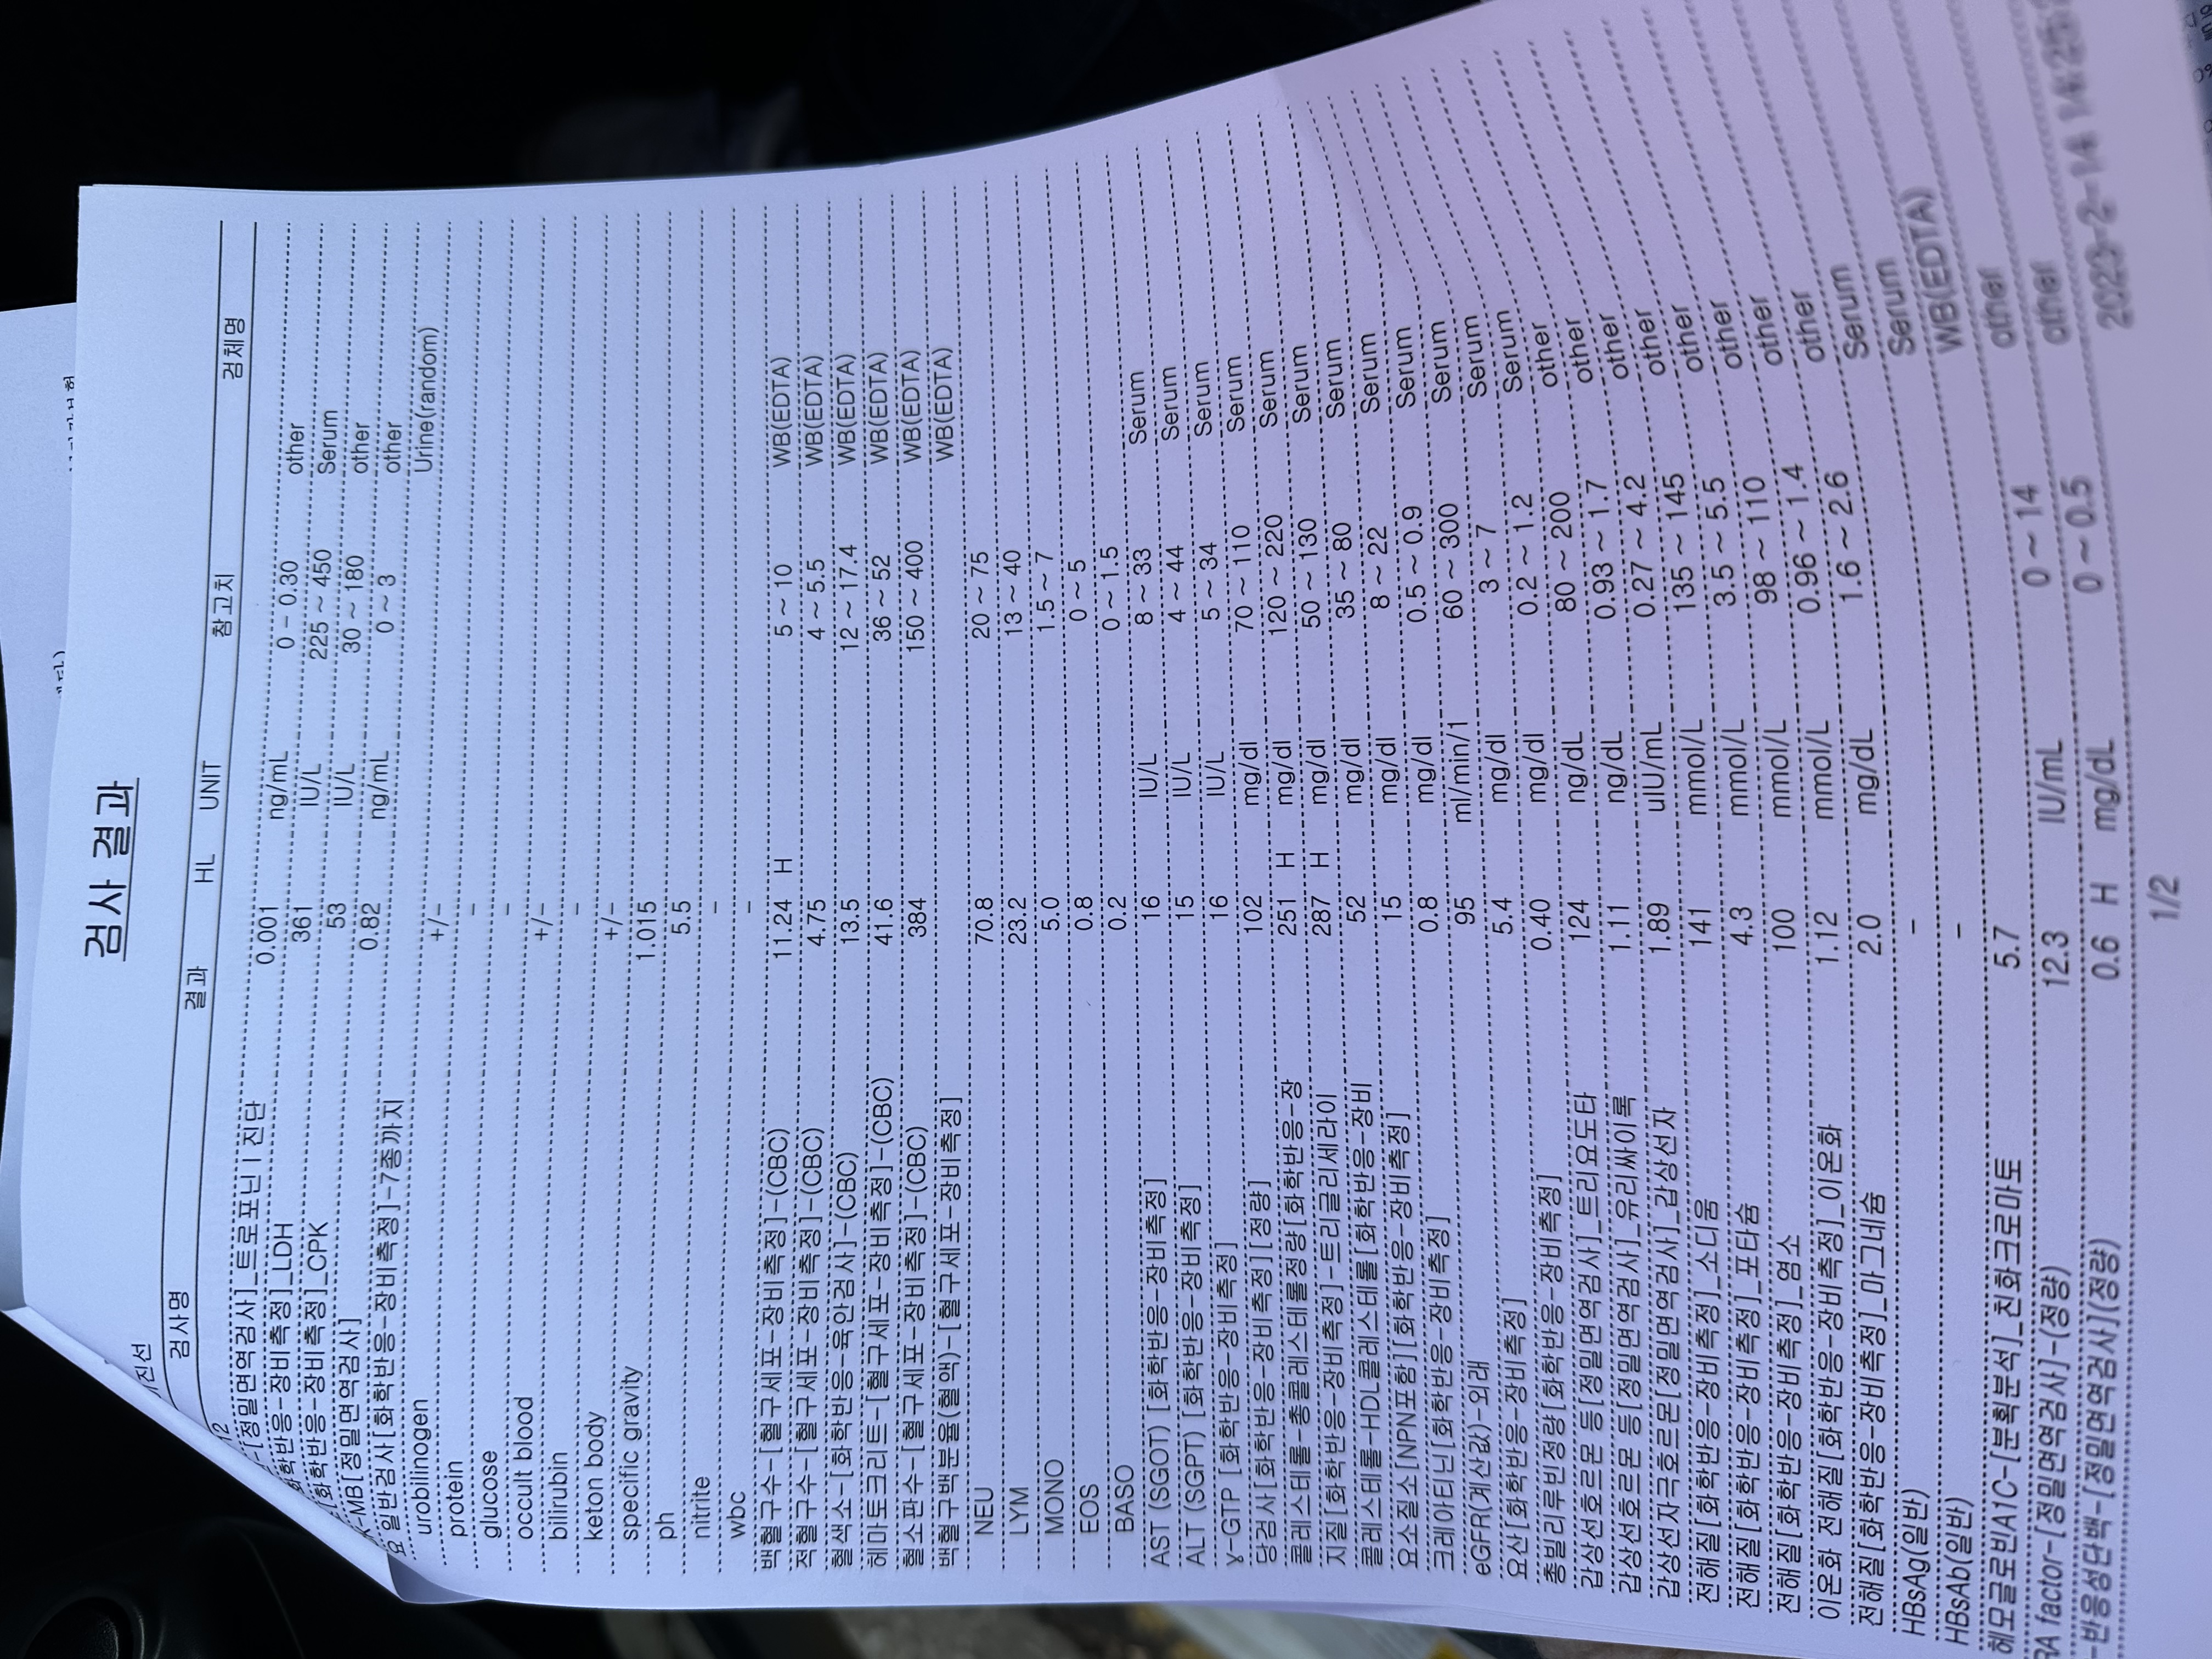 검사결과
진선
검사명 결과 HL UNIT 참고치 검체명
12
-[정밀면역검사]_트로포닌 I 진단 0.001 ng/mL 0 - 0.30 other
화학반응-장비측정]_LDH 361 IU/L 225 ~ 450 Serum
[화학반응-장비측정]_CPK 53 IU/L 30 ~ 180 other
K-MB[정밀면역검사] 0.82 ng/mL 0 ~ 3 other
요 일반검사[화학반응-장비측정]-7종까지 Urine(random)
urobilinogen +/-
protein -
glucose -
occult blood +/-
bilirubin -
keton body +/-
specific gravity 1.015
ph 5.5
nitrite -
wbc -
백혈구수-[혈구세포-장비측정]-(CBC) 11.24 H 5 ~ 10 WB(EDTA)
적혈구수-[혈구세포-장비측정]-(CBC) 4.75 4 ~ 5.5 WB(EDTA)
혈색소-[화학반응-육안검사]-(CBC) 13.5 12 ~ 17.4 WB(EDTA)
헤마토크리트-[혈구세포-장비측정]-(CBC) 41.6 36 ~ 52 WB(EDTA)
혈소판수-[혈구세포-장비측정]-(CBC) 384 150 ~ 400 WB(EDTA)
백혈구백분율(혈액)-[혈구세포-장비측정] WB(EDTA)
NEU 70.8 20 ~ 75
LYM 23.2 13 ~ 40
MONO 5.0 1.5 ~ 7
EOS 0.8 0 ~ 5
BASO 0.2 0 ~ 1.5
AST (SGOT) [화학반응-장비측정] 16 IU/L 8 ~ 33 Serum
ALT (SGPT) [화학반응-장비측정] 15 IU/L 4 ~ 44 Serum
γ-GTP [화학반응-장비측정] 16 IU/L 5 ~ 34 Serum
당검사[화학반응-장비측정][정량] 102 mg/dl 70 ~ 110 Serum
콜레스테롤-총콜레스테롤정량[화학반응-장 251 H mg/dl 120 ~ 220 Serum
지질[화학반응-장비측정]-트리글리세라이 287 H mg/dl 50 ~ 130 Serum
콜레스테롤-HDL콜레스테롤[화학반응-장비 52 mg/dl 35 ~ 80 Serum
요소질소[NPN포함][화학반응-장비측정] 15 mg/dl 8 ~ 22 Serum
크레아티닌[화학반응-장비측정] 0.8 mg/dl 0.5 ~ 0.9 Serum
eGFR(계산값)-외래 95 ml/min/1 60 ~ 300 Serum
요산[화학반응-장비측정] 5.4 mg/dl 3 ~ 7 Serum
총빌리루빈정량[화학반응-장비측정] 0.40 mg/dl 0.2 ~ 1.2 Serum
갑상선호르몬 등[정밀면역검사]_트리요도타 124 ng/dL 80 ~ 200 other
갑상선호르몬 등[정밀면역검사]_유리싸이록 1.11 ng/dL 0.93 ~ 1.7 other
갑상선자극호르몬[정밀면역검사]_갑상선자 1.89 uIU/mL 0.27 ~ 4.2 other
전해질[화학반응-장비측정]_소디움 141 mmol/L 135 ~ 145 other
전해질[화학반응-장비측정]_포타슘 4.3 mmol/L 3.5 ~ 5.5 other
전해질[화학반응-장비측정]_염소 100 mmol/L 98 ~ 110 other
이온화 전해질[화학반응-장비측정]_이온화 1.12 mmol/L 0.96 ~ 1.4 other
전해질[화학반응-장비측정]_마그네슘 2.0 mg/dL 1.6 ~ 2.6 other
HBsAg(일반) - Serum
HBsAb(일반) - Serum
헤모글로빈A1C-[분획분석]_친화크로마토 5.7 WB(EDTA)
RA factor-[정밀면역검사]-(정량) 12.3 IU/mL 0 ~ 14 other
-반응성단백-[정밀면역검사](정량) 0.6 H mg/dL 0 ~ 0.5 other
1/2